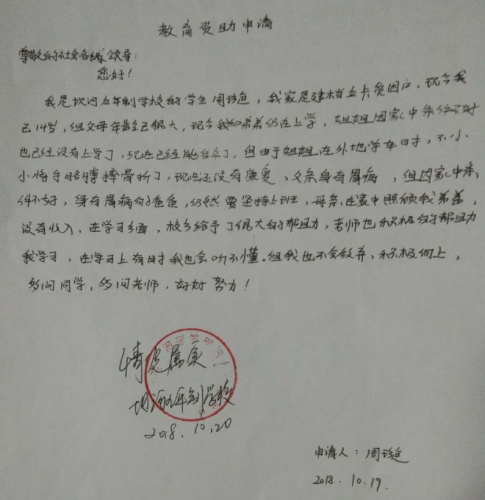 教育资助申请
尊敬的社会各级领导:
您好!
我是坝河九年制学校的学生周诗意,我家是建档立卡贫困户,现今我
已14岁,祖父母年龄已很大,现今我和弟弟仍在上学,姐姐因家中条件不好
也已经没有上学了,现在已经能去打工了,但由于姐姐在外地学车时,不小
心将手胳膊摔骨折了,现在还没有康复,父亲身有胃病,但因家中条
件不好,身有胃病的爸爸,仍然要坚持上班,母亲在家中照顾我弟弟,
没有收入,在学习方面,校方给予了很大的帮助力,老师也积极的帮助
我学习,在学习上有时我也会听不懂。但我也不会放弃,积极向上,
多问同学,多问老师,好好努力!
情况属实
坝河九年制学校
2018.10.20
申请人:周
2018.10.19.